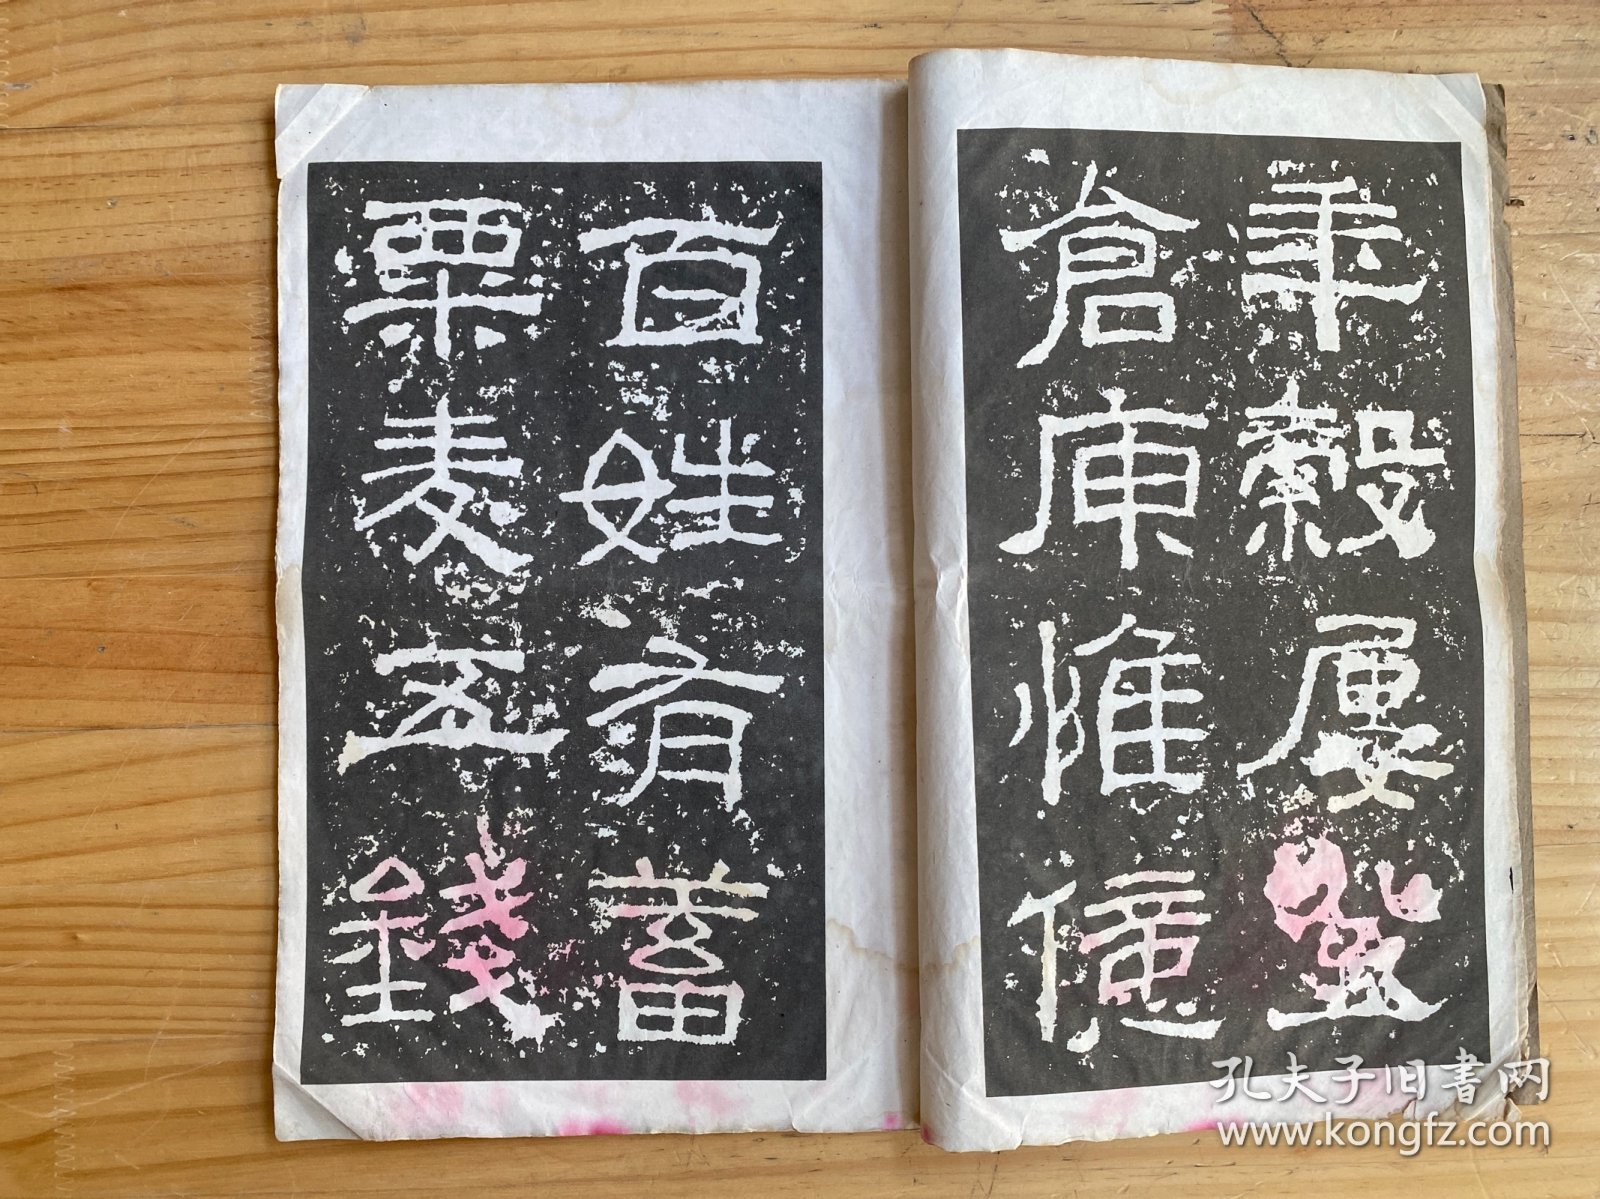 年穀屢登
倉庾惟億
百姓有蓄
粟麦五錢
孔夫子旧书网
www.kongfz.com